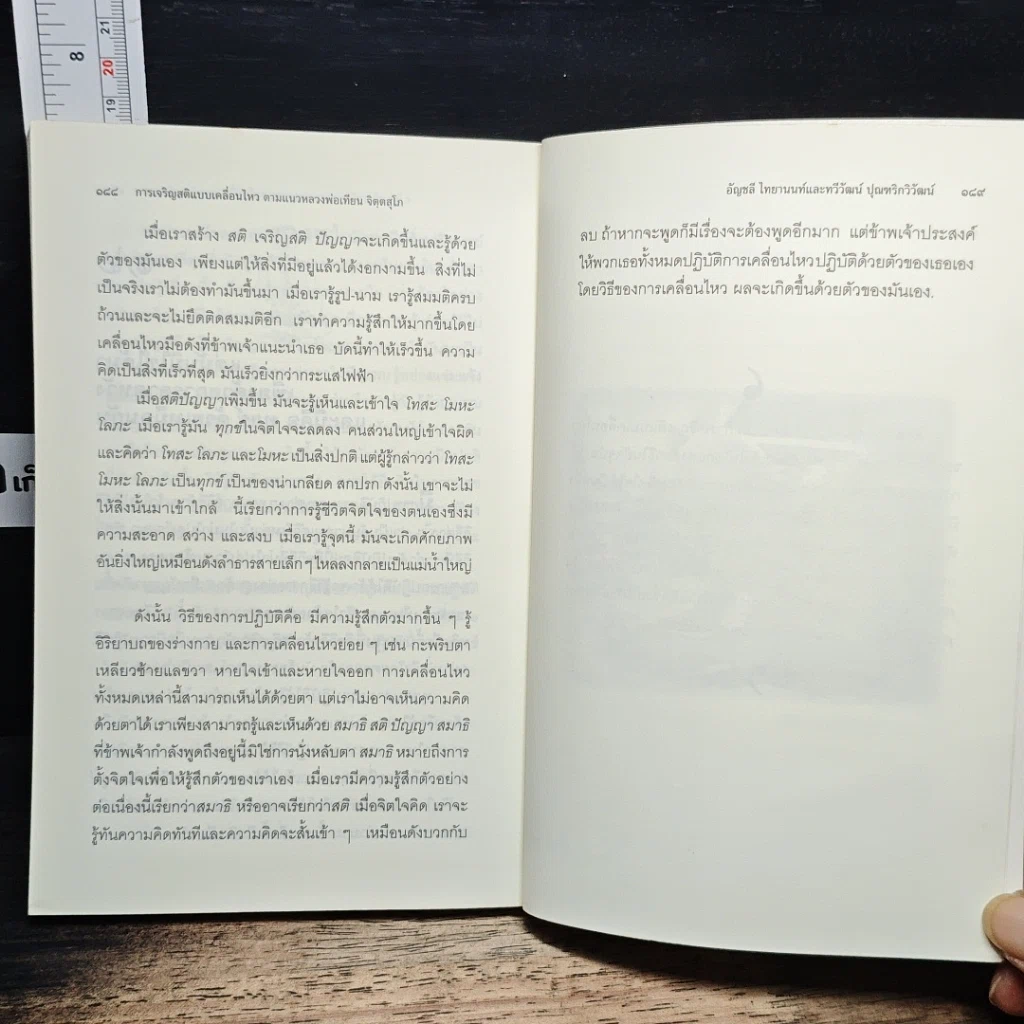 8
21
20
19
เก็
๑๘๘ การเจริญสติแบบเคลื่อนไหว ตามแนวหลวงพ่อเทียน จิตฺตสุโภ
เมื่อเราสร้าง สติ เจริญสติ ปัญญาจะเกิดขึ้นและรู้ด้วย
ตัวของมันเอง เพียงแต่ให้สิ่งที่มีอยู่แล้วได้งอกงามขึ้น สิ่งที่ไม่
เป็นจริงเราไม่ต้องทำมันขึ้นมา เมื่อเรารู้รูป-นาม เรารู้สมมติครบ
ถ้วนและจะไม่ยึดติดสมมติอีก เราทำความรู้สึกให้มากขึ้นโดย
เคลื่อนไหวมือดังที่ข้าพเจ้าแนะนำเธอ บัดนี้ทำให้เร็วขึ้น ความ
คิดเป็นสิ่งที่เร็วที่สุด มันเร็วยิ่งกว่ากระแสไฟฟ้า
เมื่อสติปัญญาเพิ่มขึ้น มันจะรู้เห็นและเข้าใจ โทสะ โมหะ
โลภะ เมื่อเรารู้มัน ทุกข์ในจิตใจจะลดลง คนส่วนใหญ่เข้าใจผิด
และคิดว่า โทสะ โลภะ และโมหะ เป็นสิ่งปกติ แต่ผู้รู้กล่าวว่า โทสะ
โมหะ โลภะ เป็นทุกข์ เป็นของน่าเกลียด สกปรก ดังนั้น เขาจะไม่
ให้สิ่งนั้นมาเข้าใกล้ นี้เรียกว่าการรู้ชีวิตจิตใจของตนเองซึ่งมี
ความสะอาด สว่าง และสงบ เมื่อเรารู้จุดนี้ มันจะเกิดศักยภาพ
อันยิ่งใหญ่เหมือนดังลำธารสายเล็กๆ ไหลลงกลายเป็นแม่น้ำใหญ่
ดังนั้น วิธีของการปฏิบัติคือ มีความรู้สึกตัวมากขึ้น ๆ รู้
อิริยาบถของร่างกาย และการเคลื่อนไหวย่อย ๆ เช่น กะพริบตา
เหลียวซ้ายแลขวา หายใจเข้าและหายใจออก การเคลื่อนไหว
ทั้งหมดเหล่านี้สามารถเห็นได้ด้วยตา แต่เราไม่อาจเห็นความคิด
ด้วยตาได้ เราเพียงสามารถรู้และเห็นด้วย สมาธิ สติ ปัญญา สมาธิ
ที่ข้าพเจ้ากำลังพูดถึงอยู่นี้มิใช่การนั่งหลับตา สมาธิ หมายถึงการ
ตั้งจิตใจเพื่อให้รู้สึกตัวของเราเอง เมื่อเรามีความรู้สึกตัวอย่าง
ต่อเนื่องนี้เรียกว่าสมาธิ หรืออาจเรียกว่าสติ เมื่อจิตใจคิด เราจะ
รู้ทันความคิดทันทีและความคิดจะสั้นเข้า ๆ เหมือนดังบวกกับ
อัญชลี ไทยานนท์และทวีวัฒน์ ปุณฑริกวิวัฒน์ ๑๘๙
ลบ ถ้าหากจะพูดก็มีเรื่องจะต้องพูดอีกมาก แต่ข้าพเจ้าประสงค์
ให้พวกเธอทั้งหมดปฏิบัติการเคลื่อนไหวปฏิบัติด้วยตัวของเธอเอง
โดยวิธีของการเคลื่อนไหว ผลจะเกิดขึ้นด้วยตัวของมันเอง.